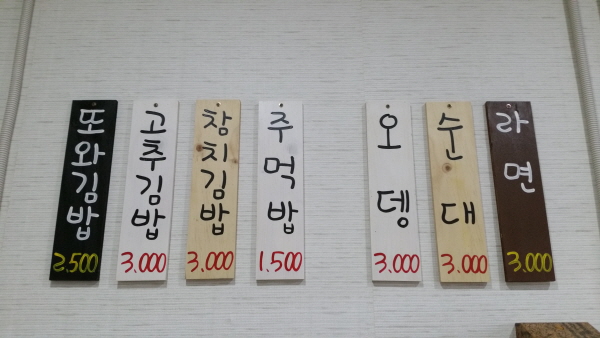 또와김밥
2.500
고추김밥
3.000
참치김밥
3.000
주먹밥
1.500
오뎅
3.000
순대
3.000
라면
3.000